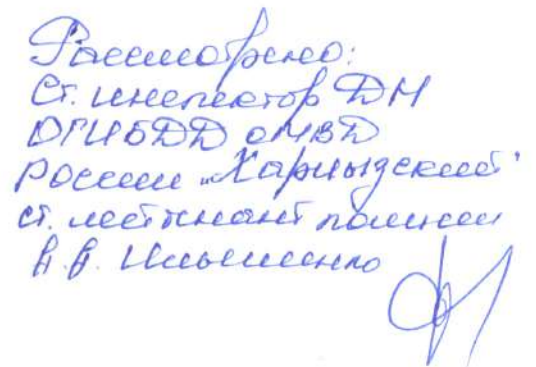 Рассмотрено:
Ст. инспектор ДН
ОГИБДД ОМВД
России „Харцызский"
ст. лейтенант полиции
А.А. Ильяшенко